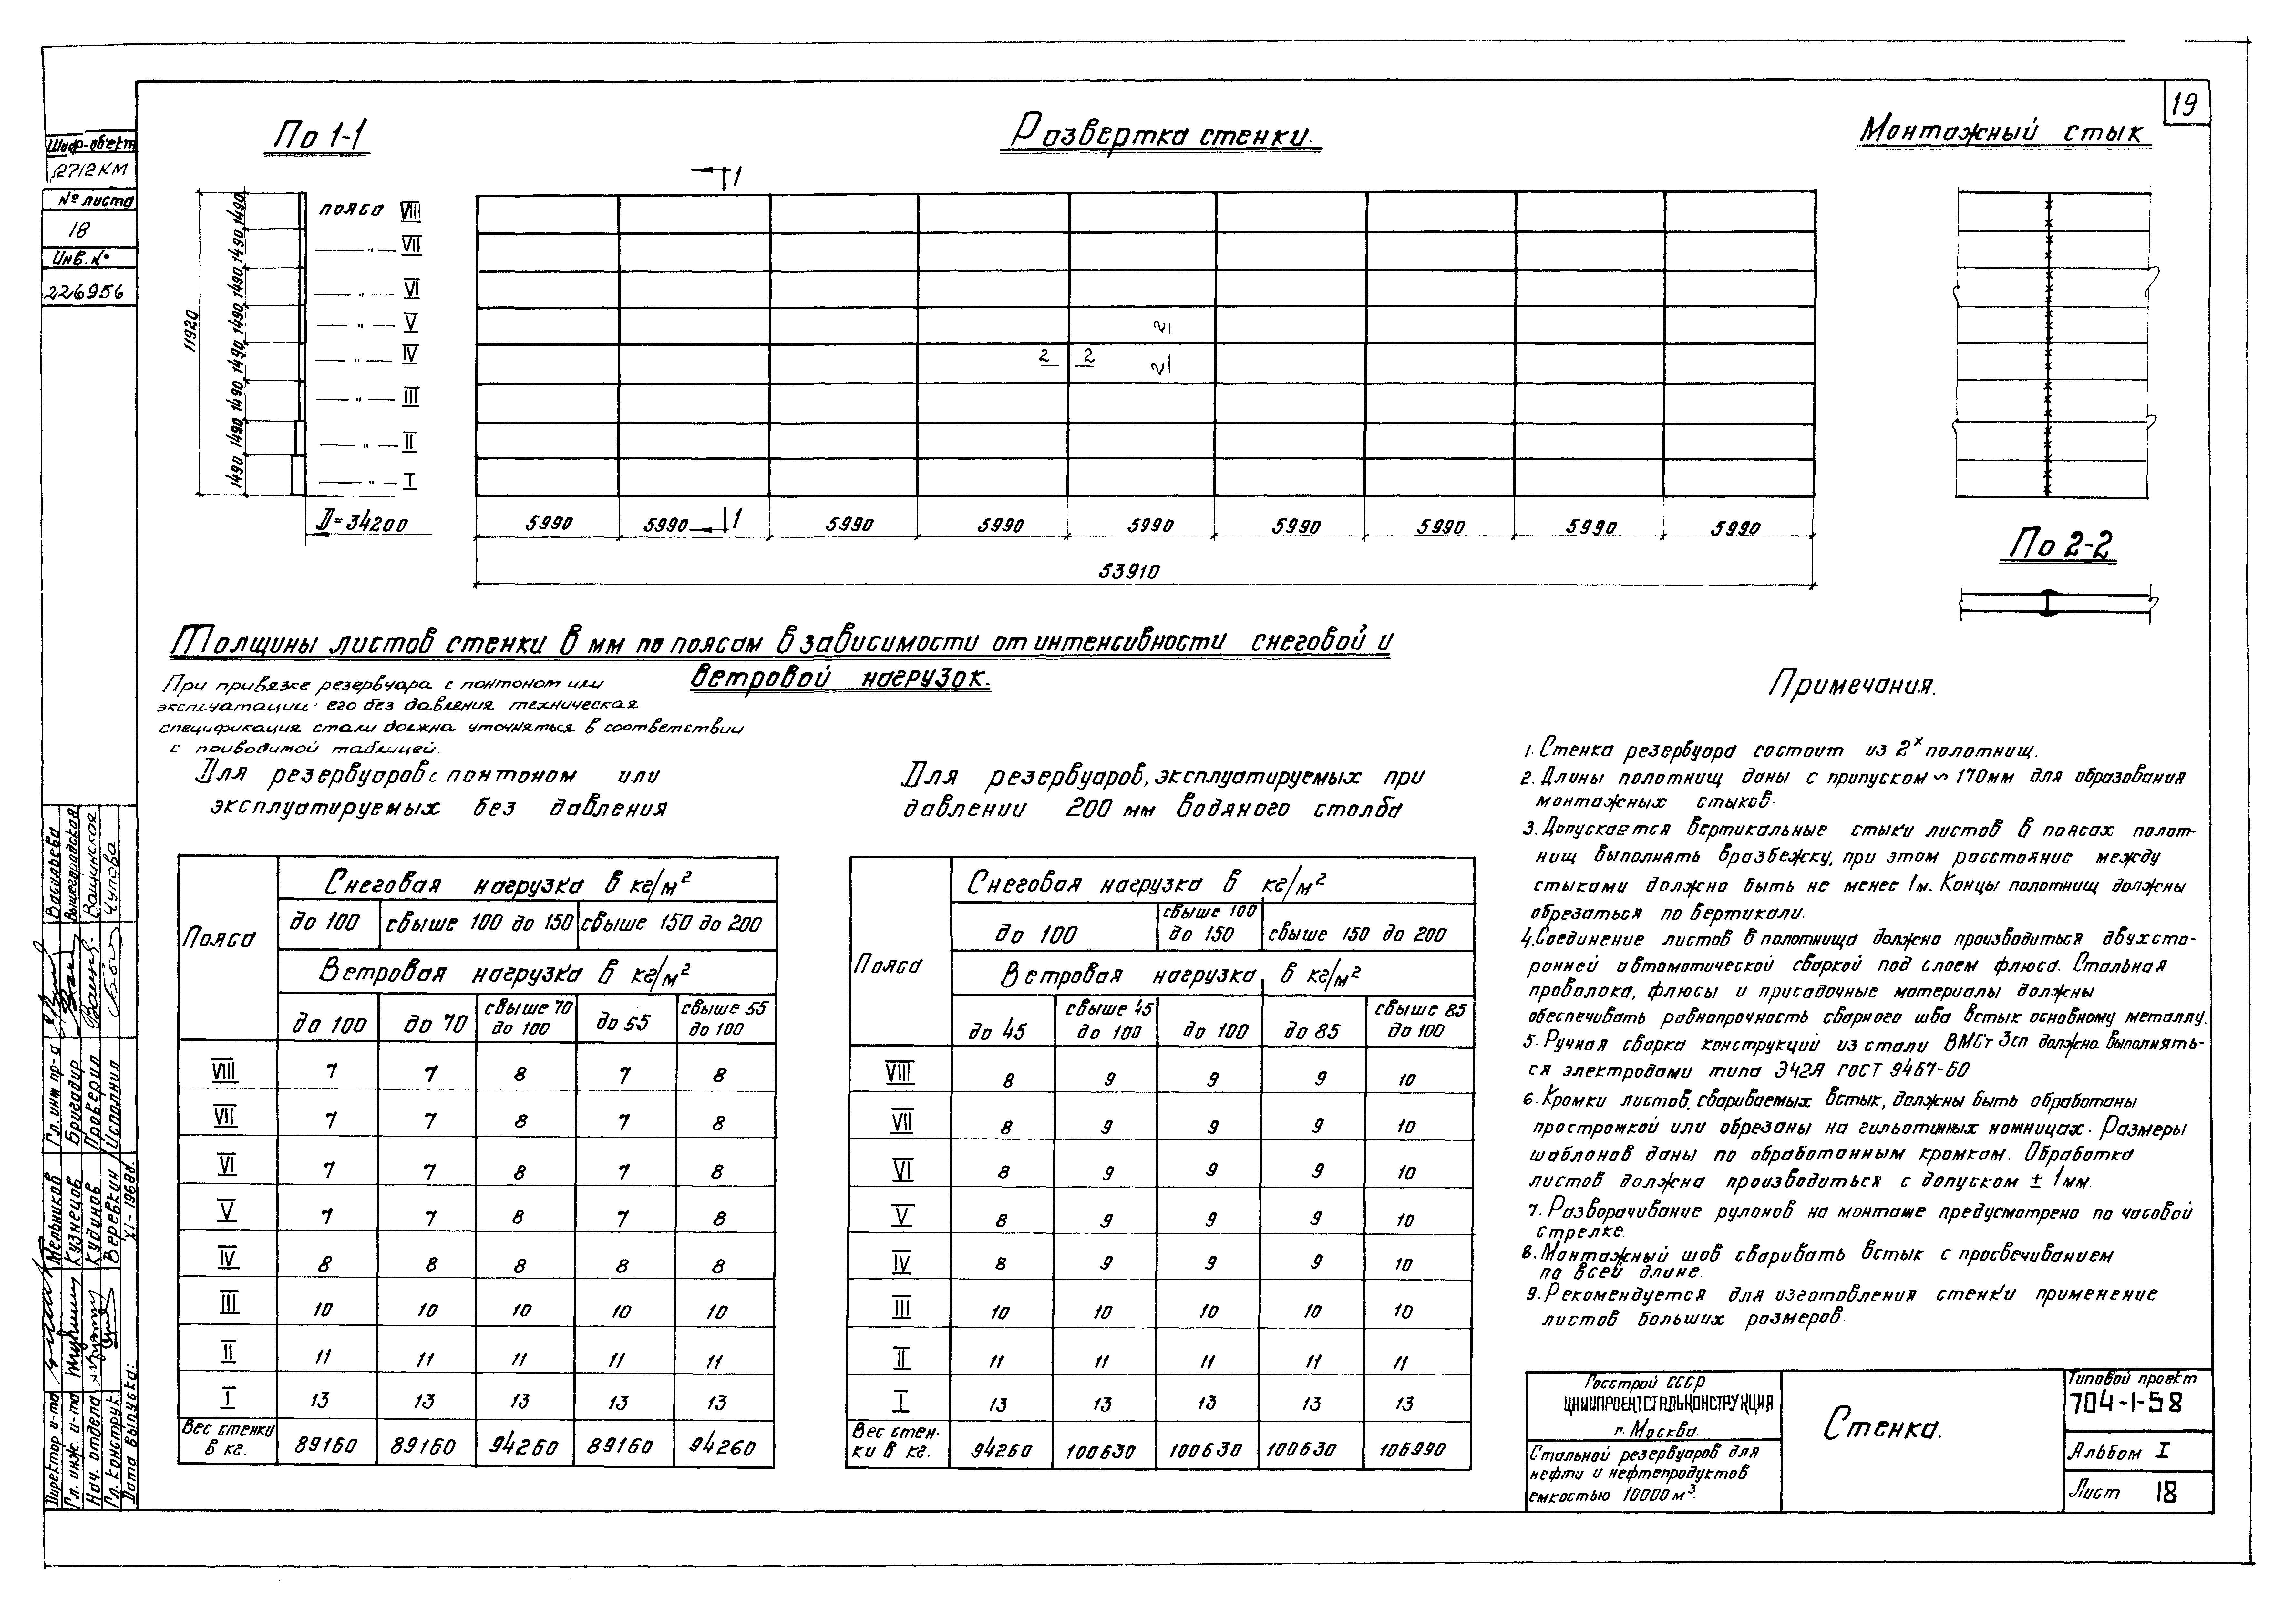 19
Шифр-объекта
12712КМ
№ листа
18
Инв. №
226956
По 1-1
Развертка стенки.
Монтажный стык
1
1490 1490 1490 1490 1490 1490 1490 1490
11920
пояса VIII
— " — VII
— " — VI
— " — V
— " — IV
— " — III
— " — II
— " — I
D=34200
2 2
2
2
1
5990 5990 5990 5990 5990 5990 5990 5990 5990
53910
По 2-2
Толщины листов стенки в мм по поясам в зависимости от интенсивности снеговой и
ветровой нагрузок.
При привязке резервуара с понтоном или
эксплуатации его без давления техническая
спецификация стали должна уточняться в соответствии
с приводимой таблицей.
Для резервуаров с понтоном или
эксплуатируемых без давления
Пояса
Снеговая нагрузка в кг/м²
до 100 свыше 100 до 150 свыше 150 до 200
Ветровая нагрузка в кг/м²
до 100 до 70 свыше 70 до 100 до 55 свыше 55 до 100
VIII 7 7 8 7 8
VII 7 7 8 7 8
VI 7 7 8 7 8
V 7 7 8 7 8
IV 8 8 8 8 8
III 10 10 10 10 10
II 11 11 11 11 11
I 13 13 13 13 13
Вес стенки
в кг. 89160 89160 94260 89160 94260
Для резервуаров, эксплуатируемых при
давлении 200 мм водяного столба
Пояса
Снеговая нагрузка в кг/м²
до 100 свыше 100 до 150 свыше 150 до 200
Ветровая нагрузка в кг/м²
до 45 свыше 45 до 100 до 100 до 85 свыше 85 до 100
VIII 8 9 9 9 10
VII 8 9 9 9 10
VI 8 9 9 9 10
V 8 9 9 9 10
IV 8 9 9 9 10
III 10 10 10 10 10
II 11 11 11 11 11
I 13 13 13 13 13
Вес стен-
ки в кг. 94260 100630 100630 100630 106990
Примечания.
1. Стенка резервуара состоит из 2х полотнищ.
2. Длины полотнищ даны с припуском ~ 170мм для образования
монтажных стыков.
3. Допускается вертикальные стыки листов в поясах полот-
нищ выполнять вразбежку, при этом расстояние между
стыками должно быть не менее 1м. Концы полотнищ должны
обрезаться по вертикали.
4. Соединение листов в полотнища должно производиться двухсто-
ронней автоматической сваркой под слоем флюса. Стальная
проволока, флюсы и присадочные материалы должны
обеспечивать равнопрочность сварного шва встык основному металлу.
5. Ручная сварка конструкций из стали ВМСт 3сп должна выполнять-
ся электродами типа Э42А ГОСТ 9467-60
6. Кромки листов, свариваемых встык, должны быть обработаны
прострожкой или обрезаны на гильотинных ножницах. Размеры
шаблонов даны по обработанным кромкам. Обработка
листов должна производиться с допуском ± 1мм.
7. Разворачивание рулонов на монтаже предусмотрено по часовой
стрелке.
8. Монтажный шов сваривать встык с просвечиванием
по всей длине.
9. Рекомендуется для изготовления стенки применение
листов больших размеров.
Госстрой СССР
ЦНИИПРОЕКТСТАЛЬКОНСТРУКЦИЯ
г. Москва.
Стальной резервуаров для
нефти и нефтепродуктов
емкостью 10000 м³.
Стенка.
Типовой проект
704-1-58
Альбом I
Лист 18
Директор и-та Мельников Гл. инж. пр-а Васильева
Гл. инж. и-та Кузнецов Бригадир Вышегородская
Нач. отдела Кудинов Проверил Ващинская
Гл. конструк. Веревкин Исполнил Чупова
Дата выпуска: XI-1968г.